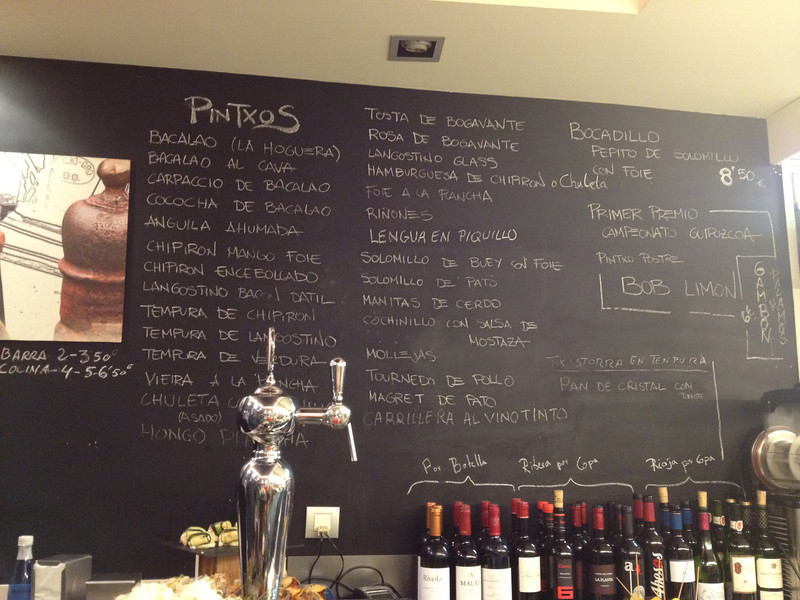 PINTXOS
BACALAO (LA HOGUERA)
BACALAO AL CAVA
CARPACCIO DE BACALAO
COCOCHA DE BACALAO
ANGUILA AHUMADA
CHIPIRON MANGO FOIE
CHIPIRON ENCEBOLLADO
LANGOSTINO BACON DATIL
TEMPURA DE CHIPIRON
TEMPURA DE LANGOSTINO
TEMPURA DE VERDURA
VIEIRA A LA PLANCHA
CHULETA
(ASADO)
HONGO
BARRA 2-3'50€
COCINA-4-5-6'50€
TOSTA DE BOGAVANTE
ROSA DE BOGAVANTE
LANGOSTINO GLASS
HAMBURGUESA DE CHIPIRON o Chuleta
FOIE A LA PLANCHA
RIÑONES
LENGUA EN PIQUILLO
SOLOMILLO DE BUEY CON FOIE
SOLOMILLO DE PATO
MANITAS DE CERDO
COCHINILLO CON SALSA DE
MOSTAZA
MOLLEJAS
TOURNEDO DE POLLO
MAGRET DE PATO
CARRILLERA AL VINO TINTO
BOCADILLO
PEPITO DE SOLOMILLO
CON FOIE
8'50€
PRIMER PREMIO
CAMPEONATO GUIPUZCOA
PINTXO POSTRE
BOB LIMON
GAMBON
6€
TXISTORRA EN TEMPURA
PAN DE CRISTAL CON
TOMATE
Por Botella
Ribera por Copa
Rioja por Copa
Rivola
MAURO
LA PLANTA
4hosas